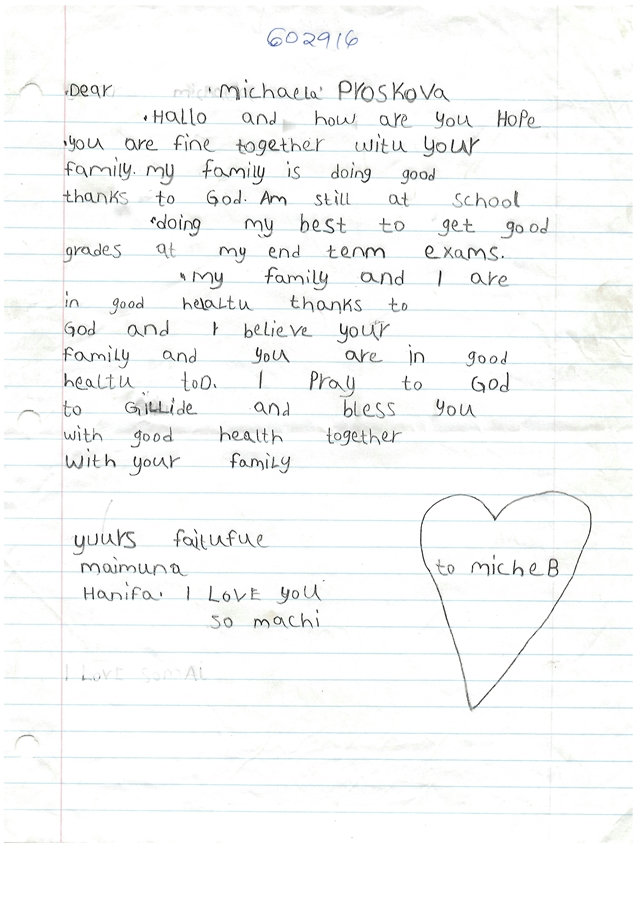 602916
Dear Michaela Proskova
Hallo and how are you Hope
you are fine together witu your
family. my family is doing good
thanks to God. Am still at school
doing my best to get good
grades at my end tenm exams.
my family and I are
in good helaltu thanks to
God and I believe your
family and you are in good
healtu too. I Pray to God
to Gillide and bless you
with good health together
with your family
yuurs faitufue
maimuna
Hanifa. I LOVE you
so machi
to micheB
I LOVE